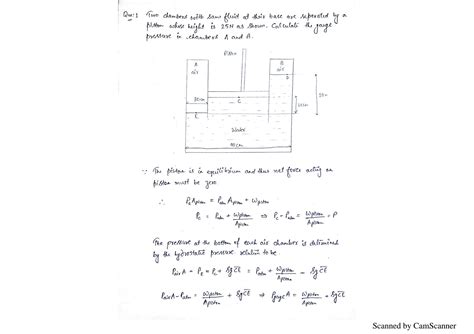 Que:1 Two chambers with same fluid at their base are separated by a
piston whose weight is 25N as shown. Calculate the gauge
pressure in chambers A and B.
Piston
A
air
B
air
D
C
E
Water
∵ The piston is in equilibrium and thus net force acting on
piston must be zero
∴ Pc Apiston = Patm Apiston + Wpiston
Pc = Patm + Wpiston/Apiston ⇒ Pc - Patm = Wpiston/Apiston = P
The pressure at the bottom of each air chamber is determined
by the hydrostatic pressure relation to be
Pair A = PE = Pc + ρg CE = Patm + Wpiston/Apiston + ρg CE
Pair A - Patm = Wpiston/Apiston + ρg CE ⇒ Pgage A = Wpiston/Apiston + ρg CE
Scanned by CamScanner